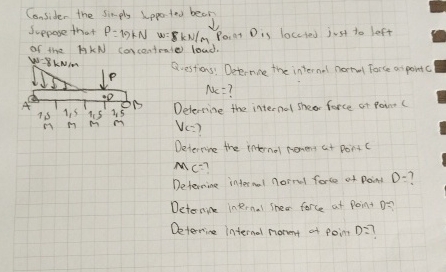 Consider the simply supported beam
Suppose that P=19kN w=8kN/m Point D is located just to left
of the 19kN concentrated load.
W=8kN/m
P
A
C
D
B
1,5 1,5 1,5 1,5
M M M M
Questions: Determine the internal normal force at point C
Nc=?
Determine the internal shear force at Point C
Vc=?
Determine the internal moment at point C
Mc=?
Determine internal normal force at Point D=?
Determine internal shear force at Point D=?
Determine internal moment at point D=?